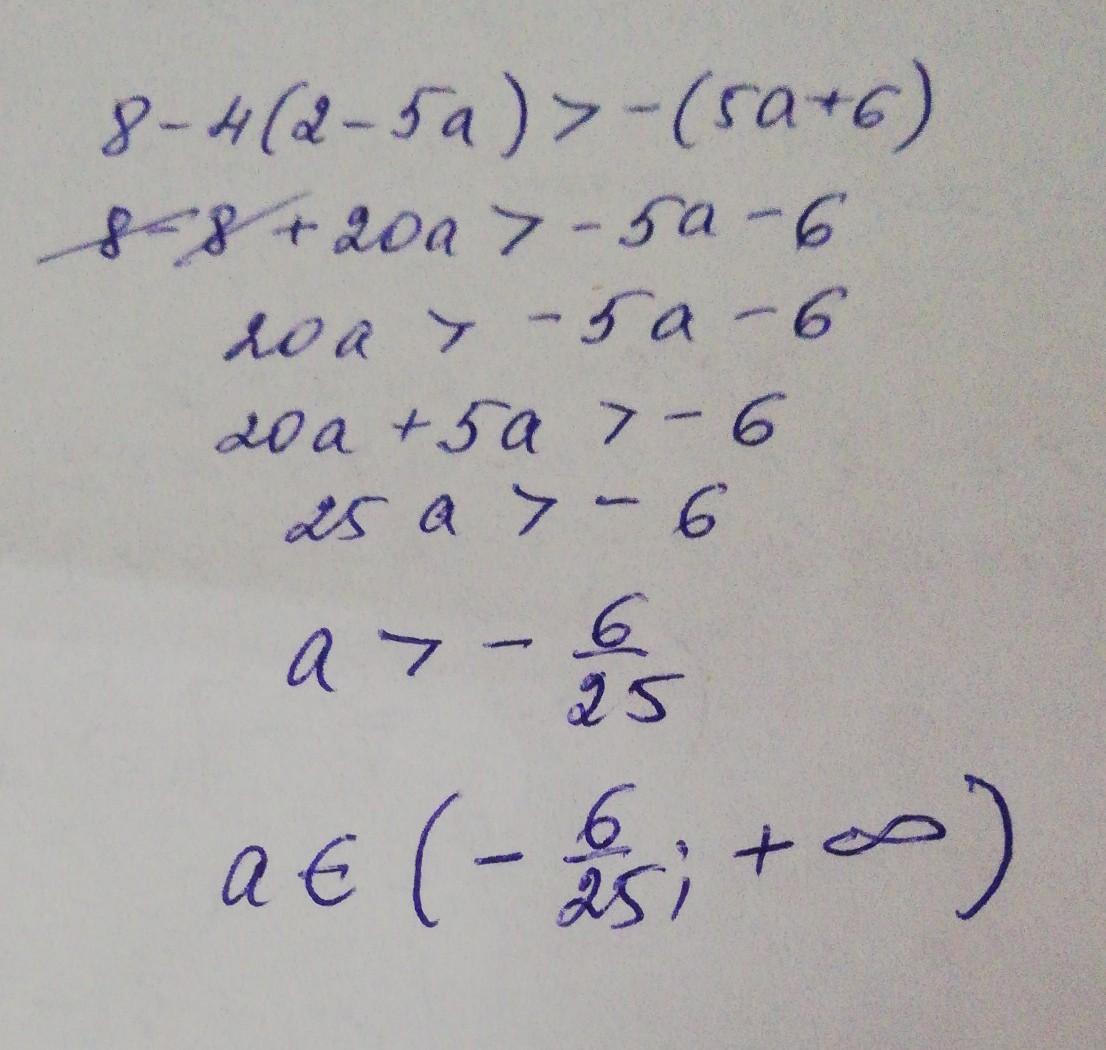 8-4(2-5a)>-(5a+6)
8-8+20a>-5a-6
20a>-5a-6
20a+5a>-6
25a>-6
a>-6/25
a∈(-6/25;+∞)